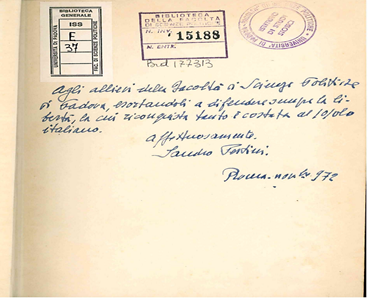 BIBLIOTECA
GENERALE
ISS
E
37
UNIVERSITÀ DI PADOVA
FAC. DI SCIENZE POLITICHE
BIBLIOTECA
DELLA FACOLTÀ
DI SCIENZE POLITICHE
N. INV. 15188
N. ENTR.
Bid 177313
Agli allievi della Facoltà di Scienze Politiche
di Padova, esortandoli a difendere sempre la li-
bertà, la cui riconquista tanto è costata al popolo
italiano.
Affettuosamente
Sandro Pertini
Roma - nov. 972